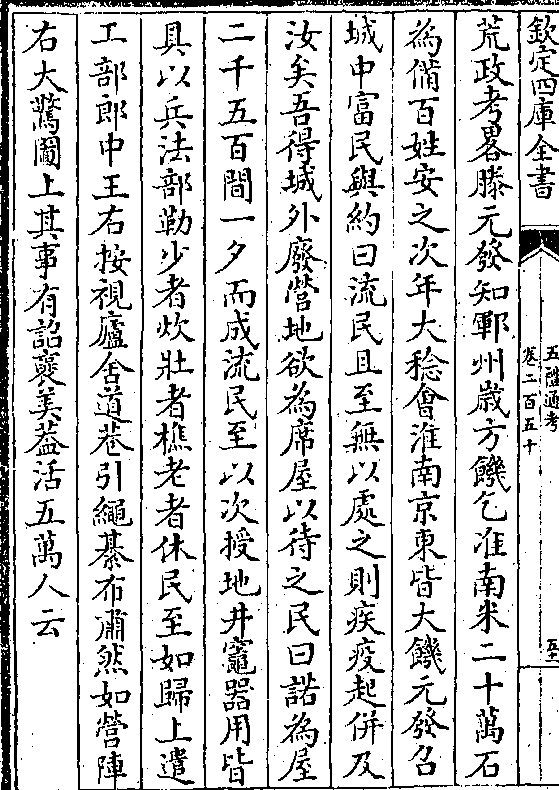 欽定四庫全書
五禮通考
卷二百五十
荒政考畧滕元發知鄆州歲方饑乞淮南米二十萬石
為備百姓安之次年大稔會淮南京東皆大饑元發召
城中富民與約曰流民且至無以處之則疾疫起併及
汝矣吾得城外廢營地欲為席屋以待之民曰諾為屋
二千五百間一夕而成流民至以次授地井竈器用皆
具以兵法部勒少者炊壯者樵老者休民至如歸上遣
工部郎中王右按視廬舍道巷引繩棊布肅然如營陣
右大驚圖上其事有詔襃美葢活五萬人云